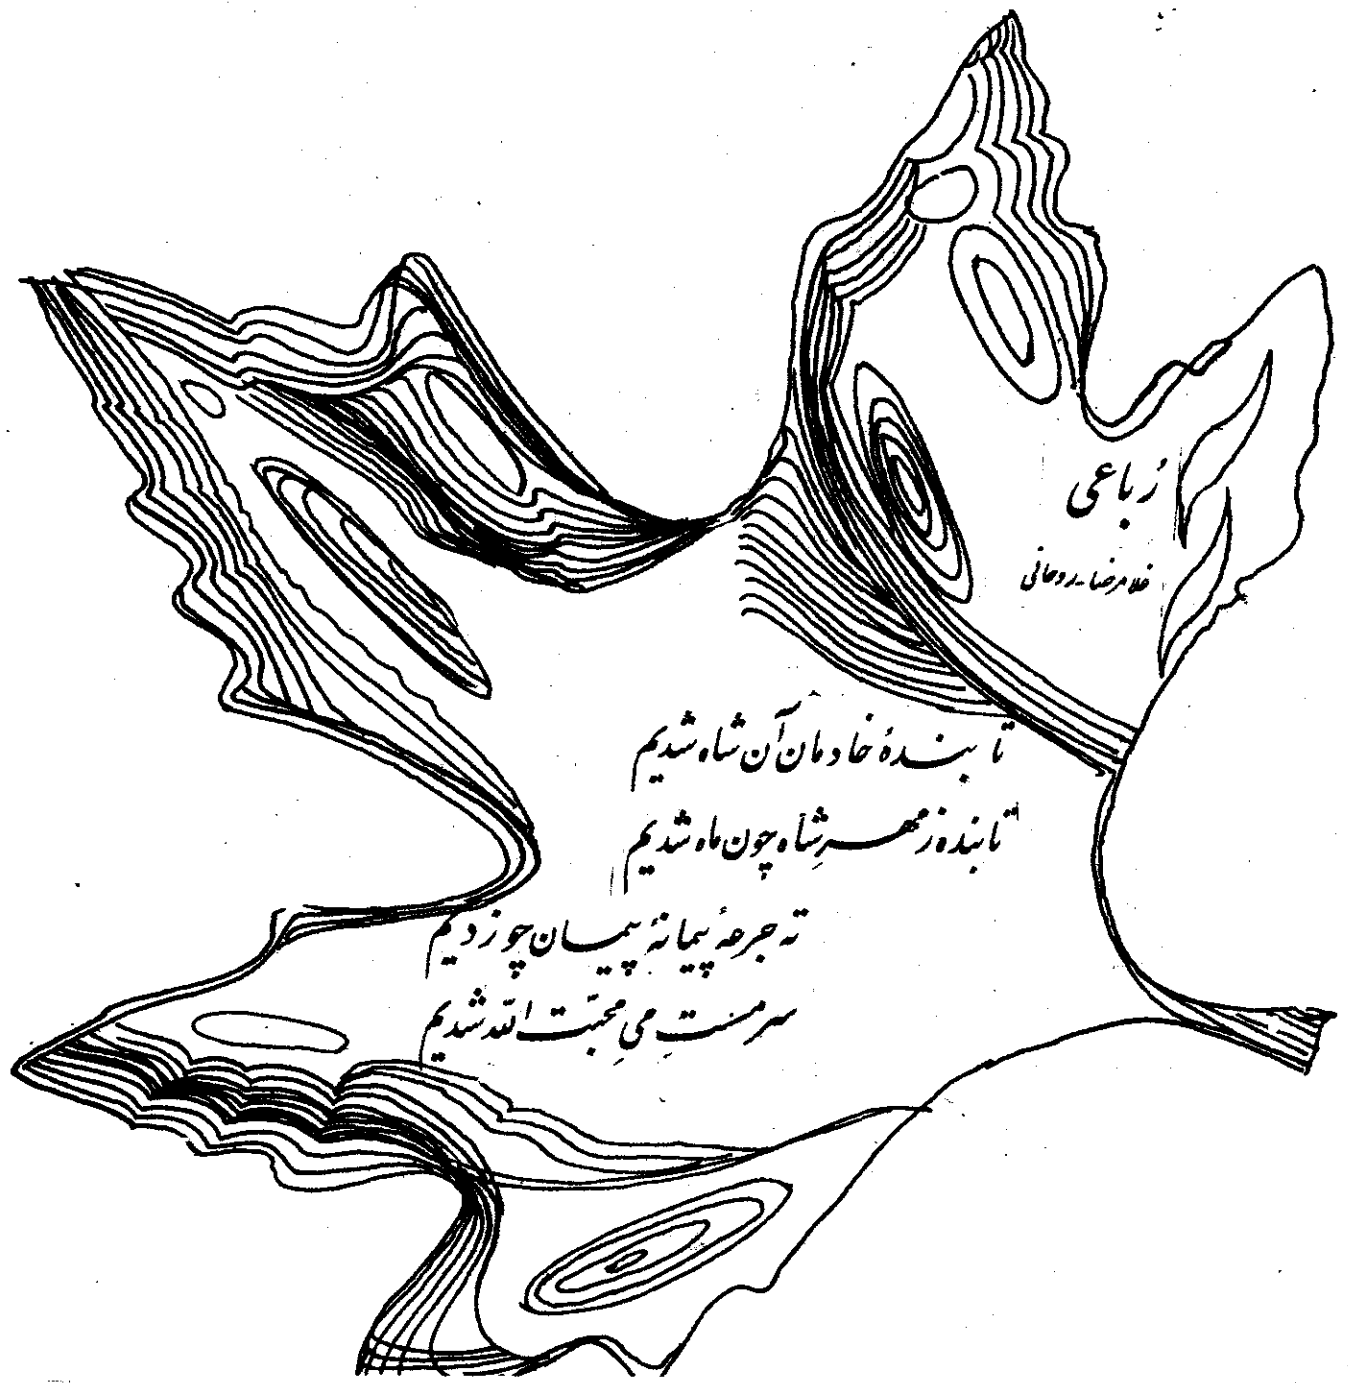 رُباعی
غلامرضا - روحانی
تا بندهٔ خادمان آن شاه شدیم
تابنده ز مهرِ شاه چون ماه شدیم
ته جرعهٔ پیمانهٔ پیمان چو زدیم
سرمستِ میِ محبّت اللّه شدیم